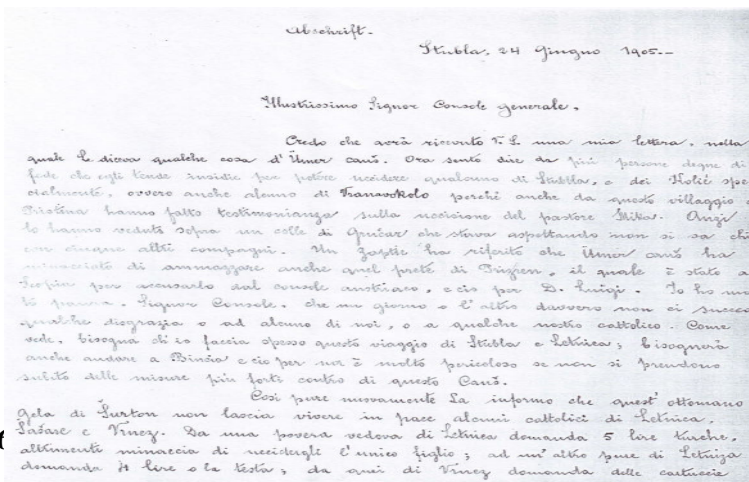 Abschrift.
Stubla, 24 Giugno 1905.-
Illustrissimo Signor Console generale,
Credo che avrà ricevuto V. S. una mia lettera, nella
quale Le diceva qualche cosa d'Ümer cauš. Ora sento dire da più persone degne di
fede che egli tende insidie per potere uccidere qualcuno di Stubla, e dei Kolić spe
cialmente, ovvero anche alcuno di perchè anche da questo villaggio a
Pristena hanno fatto testimonianza sulla uccisione del pastore Mika. Anzi
lo hanno veduto sopra un colle di che stava aspettando non si sa chi
con cinque altri compagni. Un zaptie ha riferito che Ümer cauš ha
minacciato di ammazzare anche quel prete di Prizren, il quale è stato a
Scopia per accusarlo dal console austriaco, e ciò per D. Luigi. Io ho mo
to paura, Signor Console, che un giorno o l'altro davvero non ci succed
qualche disgrazia o ad alcuno di noi, o a qualche nostro cattolico. Come
vede, bisogna ch'io faccia spesso questo viaggio di Stubla e Letnica; bisognerà
anche andare a e ciò per noi è molto pericoloso se non si prendono
subito delle misure più forti contro di questo Cauš.
Così pure nuovamente La informo che quest'ottomano
Gela di non lascia vivere in pace alcuni cattolici di Letnica,
Šašare e Vrnez. Da una povera vedova di Letnica domanda 5 lire turche,
altrimenti minaccia di uccidergli l'unico figlio; ad un'altro pure di Letniza
domanda 4 lire o la testa; da quei di Vrnez domanda delle cartuccie